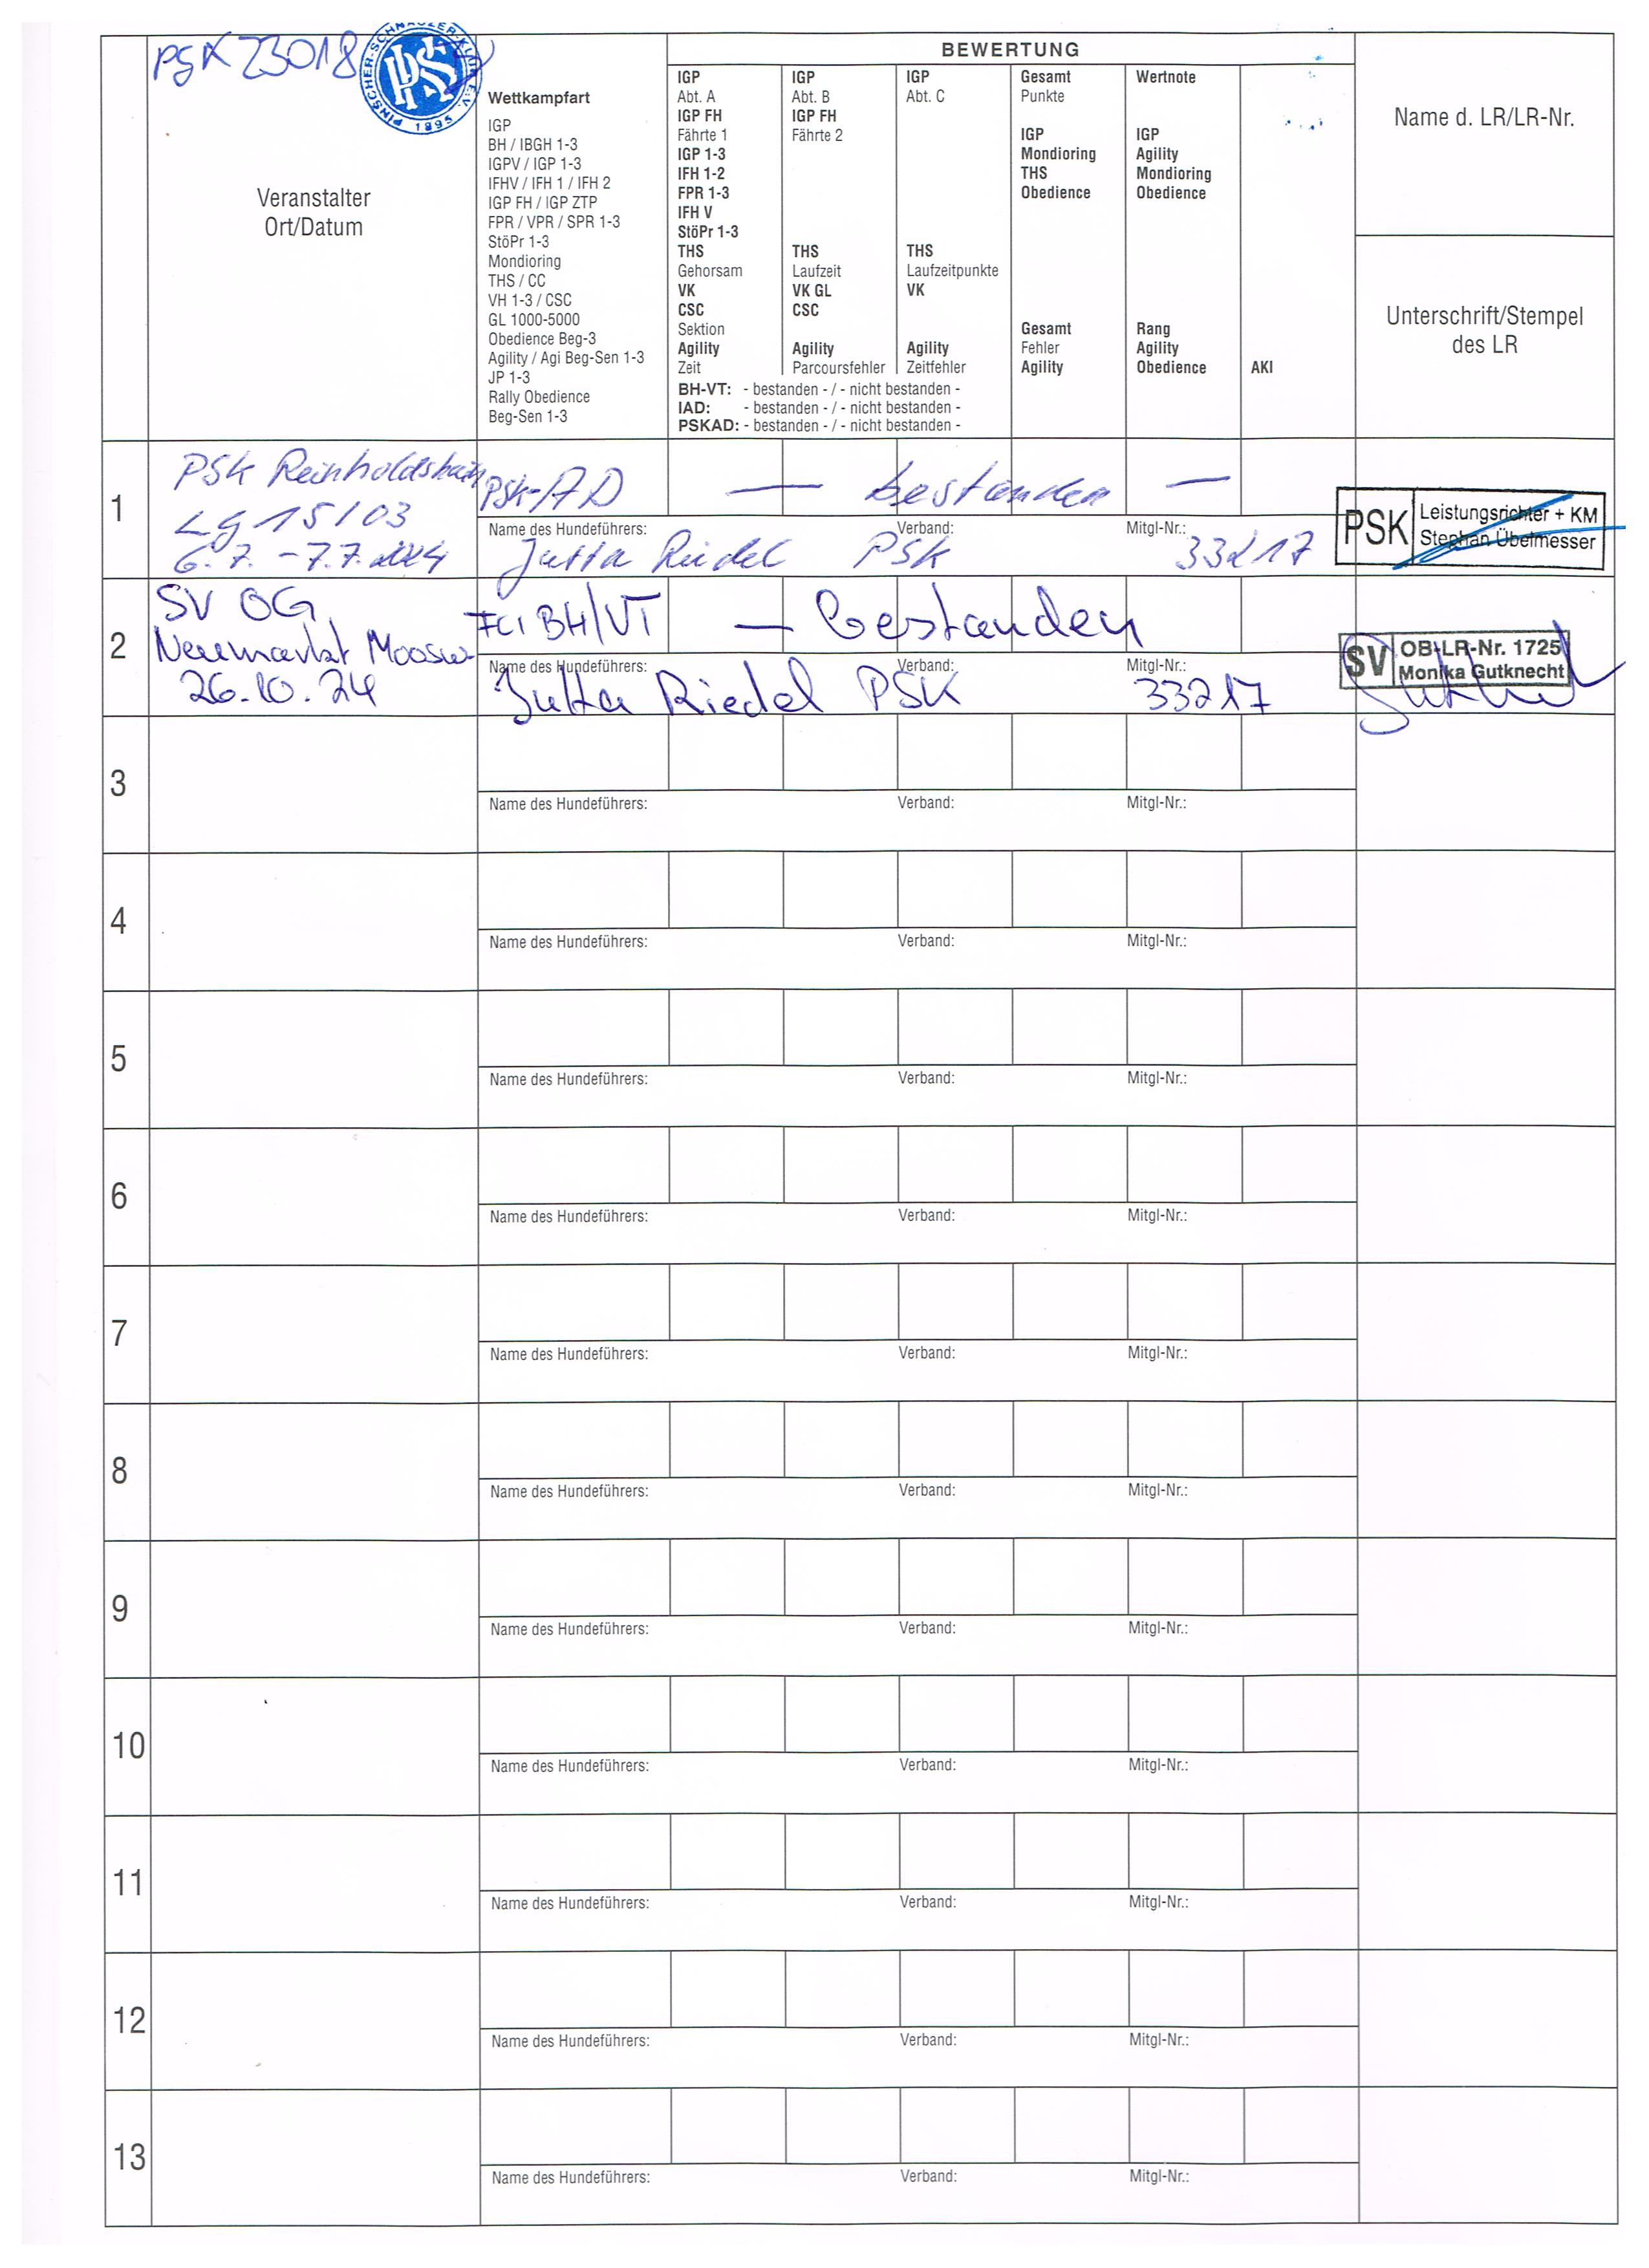 PSK 23018
PINSCHER-SCHNAUZER-KLUB E.V.
PSK
1895
Veranstalter
Ort/Datum
Wettkampfart
IGP
BH / IBGH 1-3
IGPV / IGP 1-3
IFHV / IFH 1 / IFH 2
IGP FH / IGP ZTP
FPR / VPR / SPR 1-3
StöPr 1-3
Mondioring
THS / CC
VH 1-3 / CSC
GL 1000-5000
Obedience Beg-3
Agility / Agi Beg-Sen 1-3
JP 1-3
Rally Obedience
Beg-Sen 1-3
BEWERTUNG
IGP
Abt. A
IGP FH
Fährte 1
IGP 1-3
IFH 1-2
FPR 1-3
IFH V
StöPr 1-3
THS
Gehorsam
VK
CSC
Sektion
Agility
Zeit
IGP
Abt. B
IGP FH
Fährte 2
THS
Laufzeit
VK GL
CSC
Agility
Parcoursfehler
IGP
Abt. C
THS
Laufzeitpunkte
VK
Agility
Zeitfehler
BH-VT: - bestanden - / - nicht bestanden -
IAD: - bestanden - / - nicht bestanden -
PSKAD: - bestanden - / - nicht bestanden -
Gesamt
Punkte
IGP
Mondioring
THS
Obedience
Gesamt
Fehler
Agility
Wertnote
IGP
Agility
Mondioring
Obedience
Rang
Agility
Obedience
AKI
Name d. LR/LR-Nr.
Unterschrift/Stempel
des LR
1
PSK Reinholdshain
LG 15/03
6.7. - 7.7.2024
PSK-AD — bestanden —
Name des Hundeführers: Verband: Mitgl-Nr.:
Jutta Riedel PSK 33217
PSK
Leistungsrichter + KM
Stephan Übelmesser
2
SV OG
Neumarkt
26.10.24
FCI BH/VT — bestanden
Name des Hundeführers: Verband: Mitgl-Nr.:
Jutta Riedel PSK 33217
SV
OB-LR-Nr. 1725
Monika Gutknecht
3
Name des Hundeführers: Verband: Mitgl-Nr.:
4
Name des Hundeführers: Verband: Mitgl-Nr.:
5
Name des Hundeführers: Verband: Mitgl-Nr.:
6
Name des Hundeführers: Verband: Mitgl-Nr.:
7
Name des Hundeführers: Verband: Mitgl-Nr.:
8
Name des Hundeführers: Verband: Mitgl-Nr.:
9
Name des Hundeführers: Verband: Mitgl-Nr.:
10
Name des Hundeführers: Verband: Mitgl-Nr.:
11
Name des Hundeführers: Verband: Mitgl-Nr.:
12
Name des Hundeführers: Verband: Mitgl-Nr.:
13
Name des Hundeführers: Verband: Mitgl-Nr.: